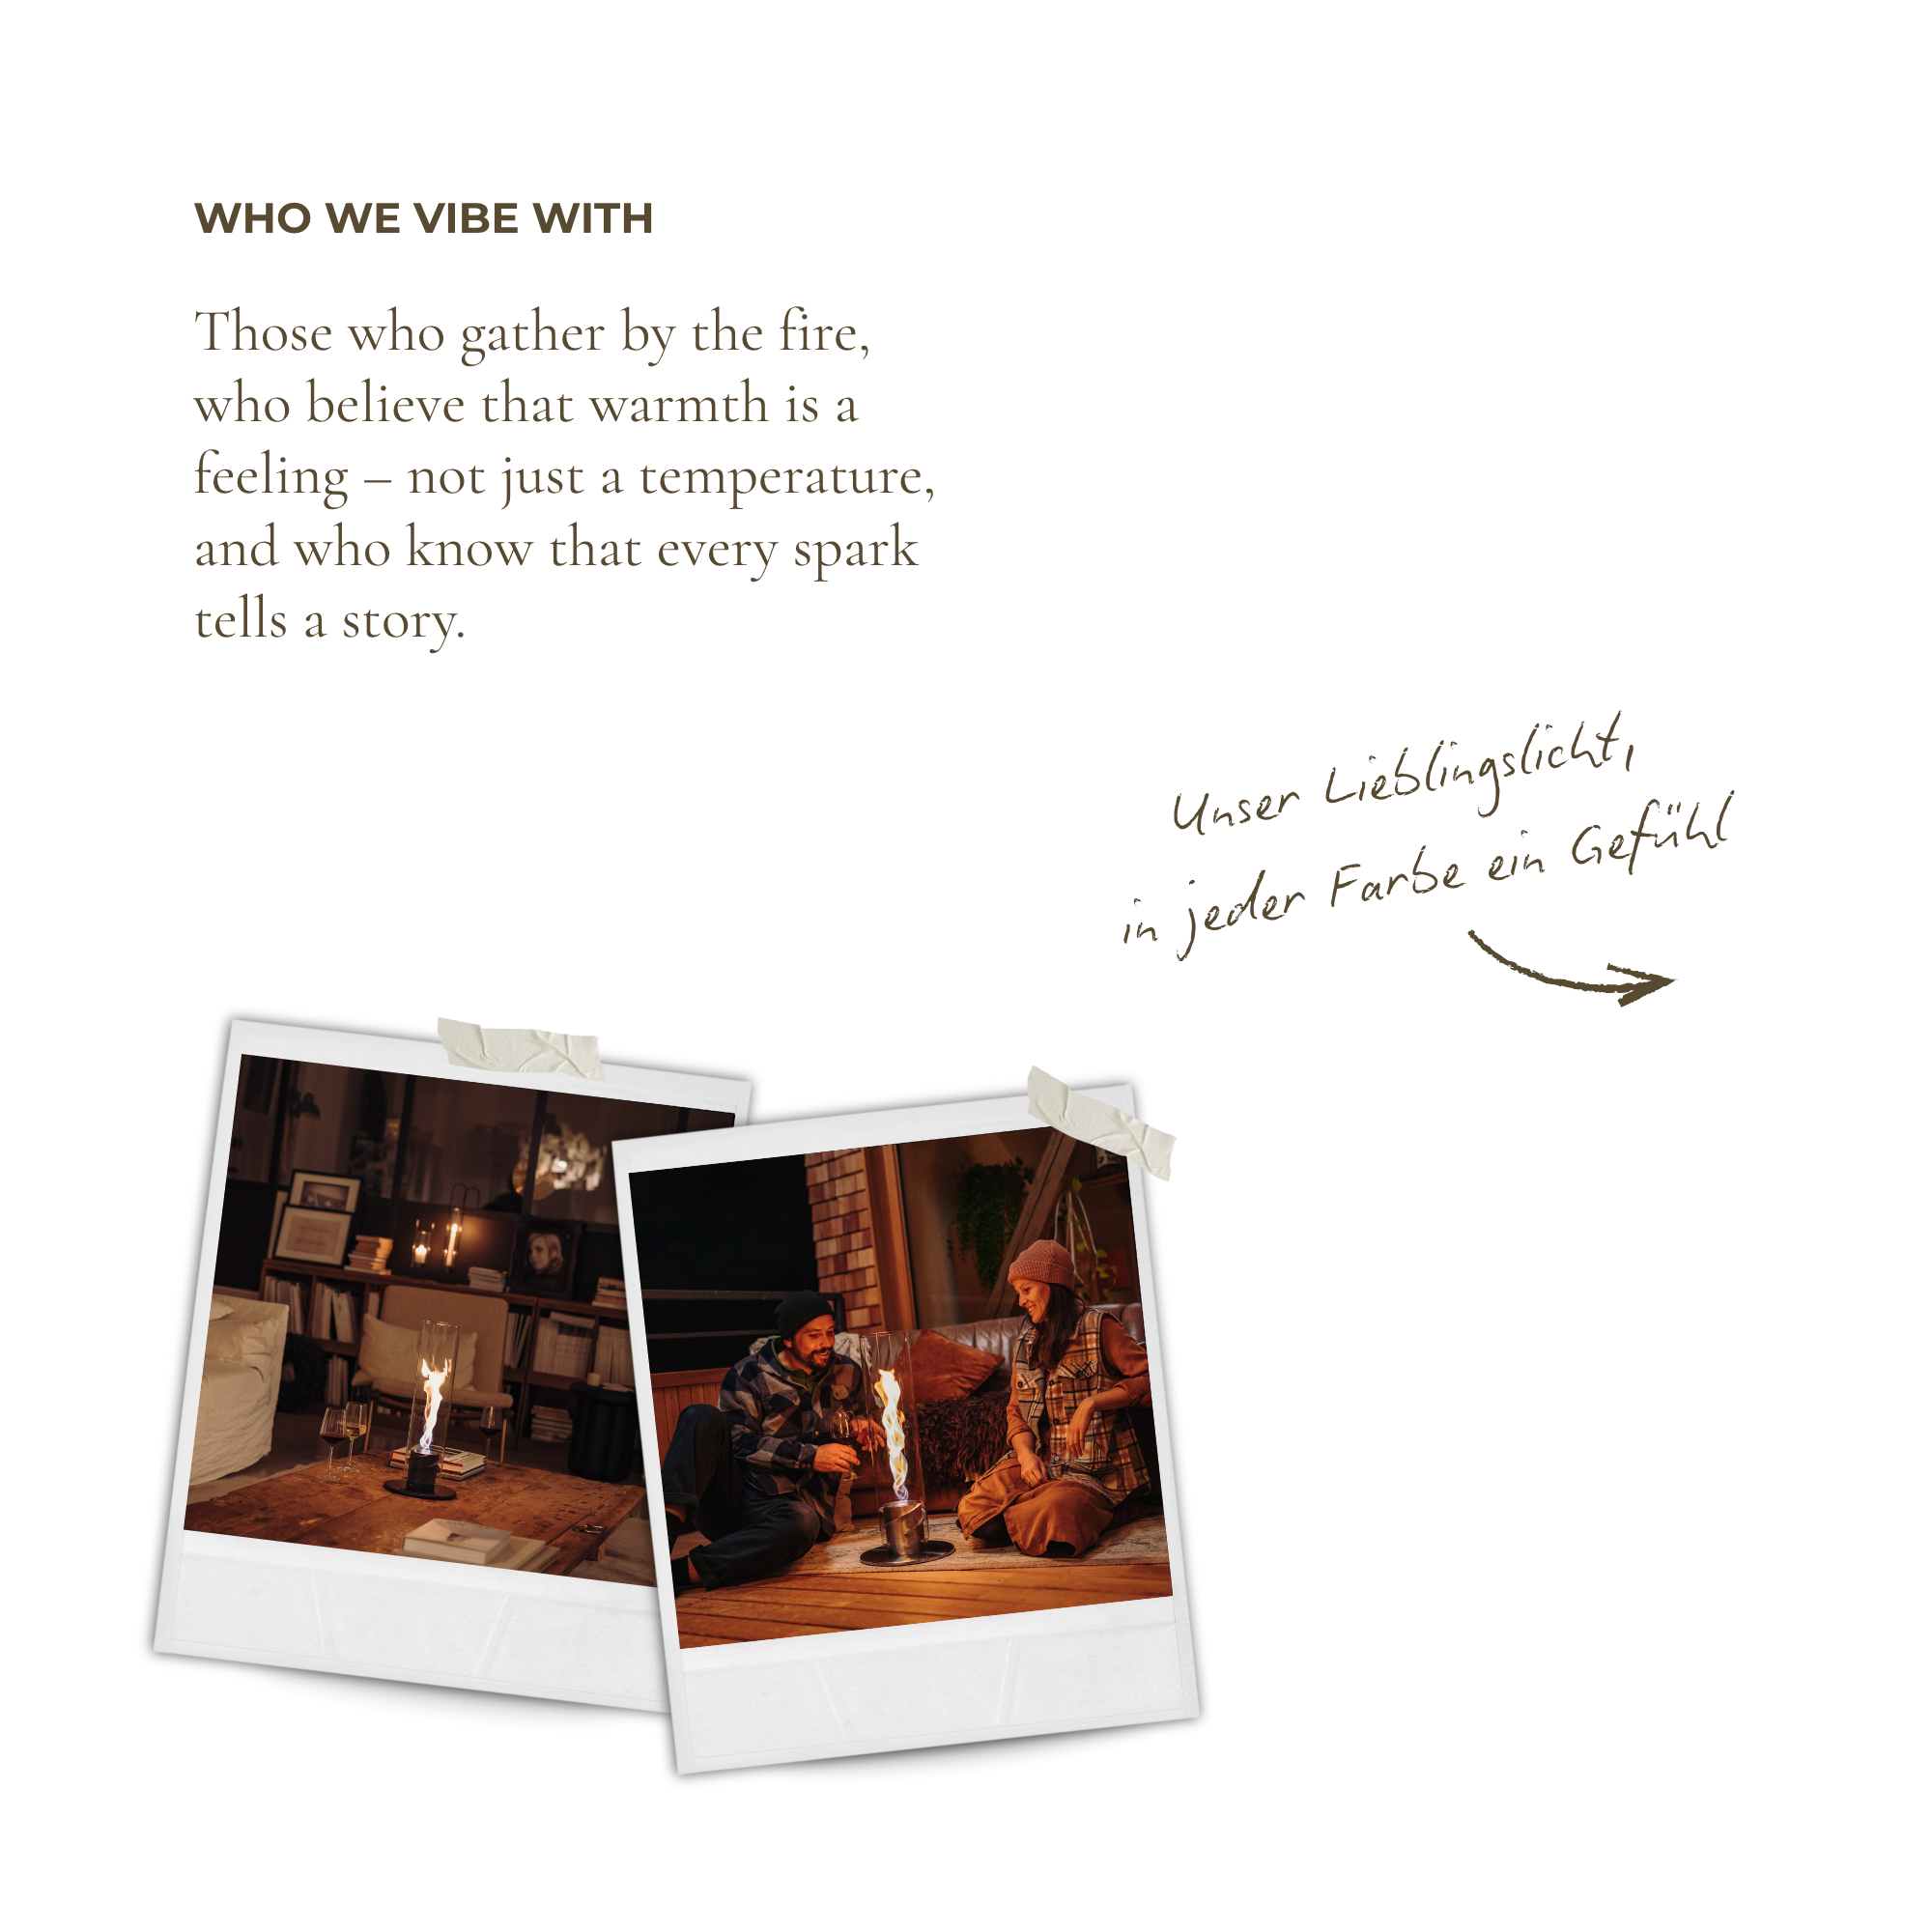 WHO WE VIBE WITH
Those who gather by the fire,
who believe that warmth is a
feeling – not just a temperature,
and who know that every spark
tells a story.
Unser Lieblingslicht,
in jeder Farbe ein Gefühl